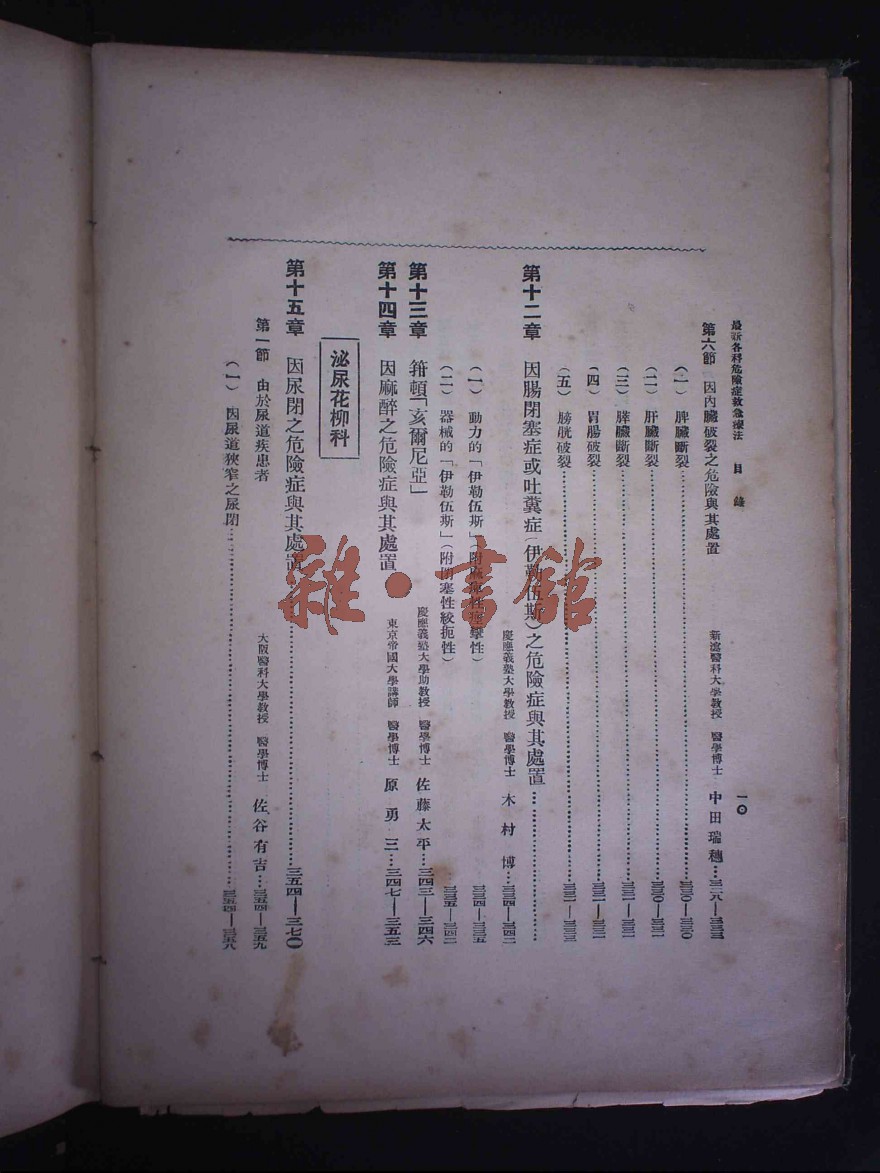 最新各科危險症救急療法　目錄　一〇
第六節　因內臟破裂之危險與其處置　新瀉醫科大學教授　醫學博士　中田瑞穗…三二八—三三三
（一）脾臟斷裂……三三〇—三三〇
（二）肝臟斷裂……三三〇—三三一
（三）膵臟斷裂……三三一—三三一
（四）胃腸破裂……三三一—三三二
（五）膀胱破裂……三三二—三三三
第十二章　因腸閉塞症或吐糞症（伊勒伍斯）之危險症與其處置……
慶應義塾大學教授　醫學博士　木村博…三三四—三四二
（一）動力的「伊勒伍斯」（附麻痺性痙攣性）……三三四—三三五
（二）器械的「伊勒伍斯」（附閉塞性絞扼性）……三三五—三四二
第十三章　箝頓「亥爾尼亞」　慶應義塾大學助教授　醫學博士　佐藤太平…三四三—三四六
第十四章　因麻醉之危險症與其處置　東京帝國大學講師　醫學博士　原勇三…三四七—三五三
泌尿花柳科
第十五章　因尿閉之危險症與其處置……三五四—三七〇
第一節　由於尿道疾患者　大阪醫科大學教授　醫學博士　佐谷有吉…三五四—三五九
（一）因尿道狹窄之尿閉……三五四—三五八
雜·書館